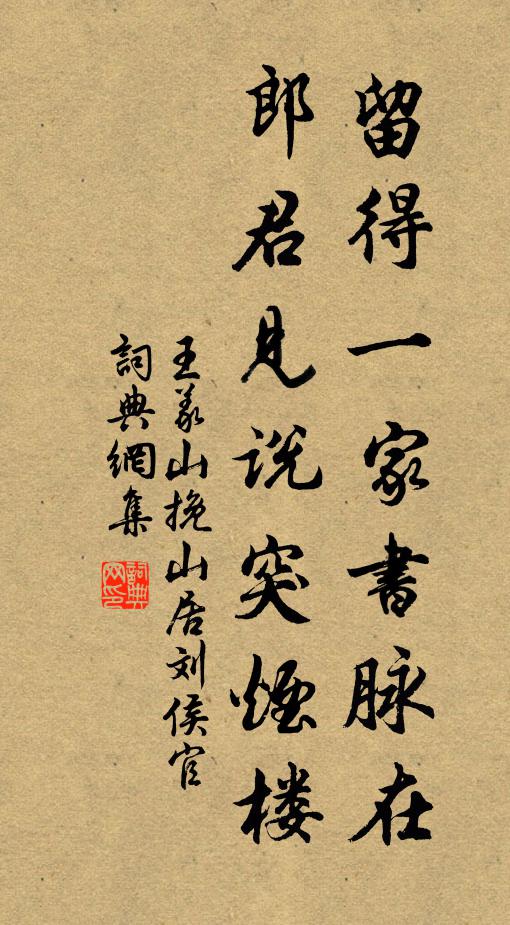 留得一家書脉在
郎君見说突煙楼
王义山挽山居刘侯官
詞典網集
詞典网印